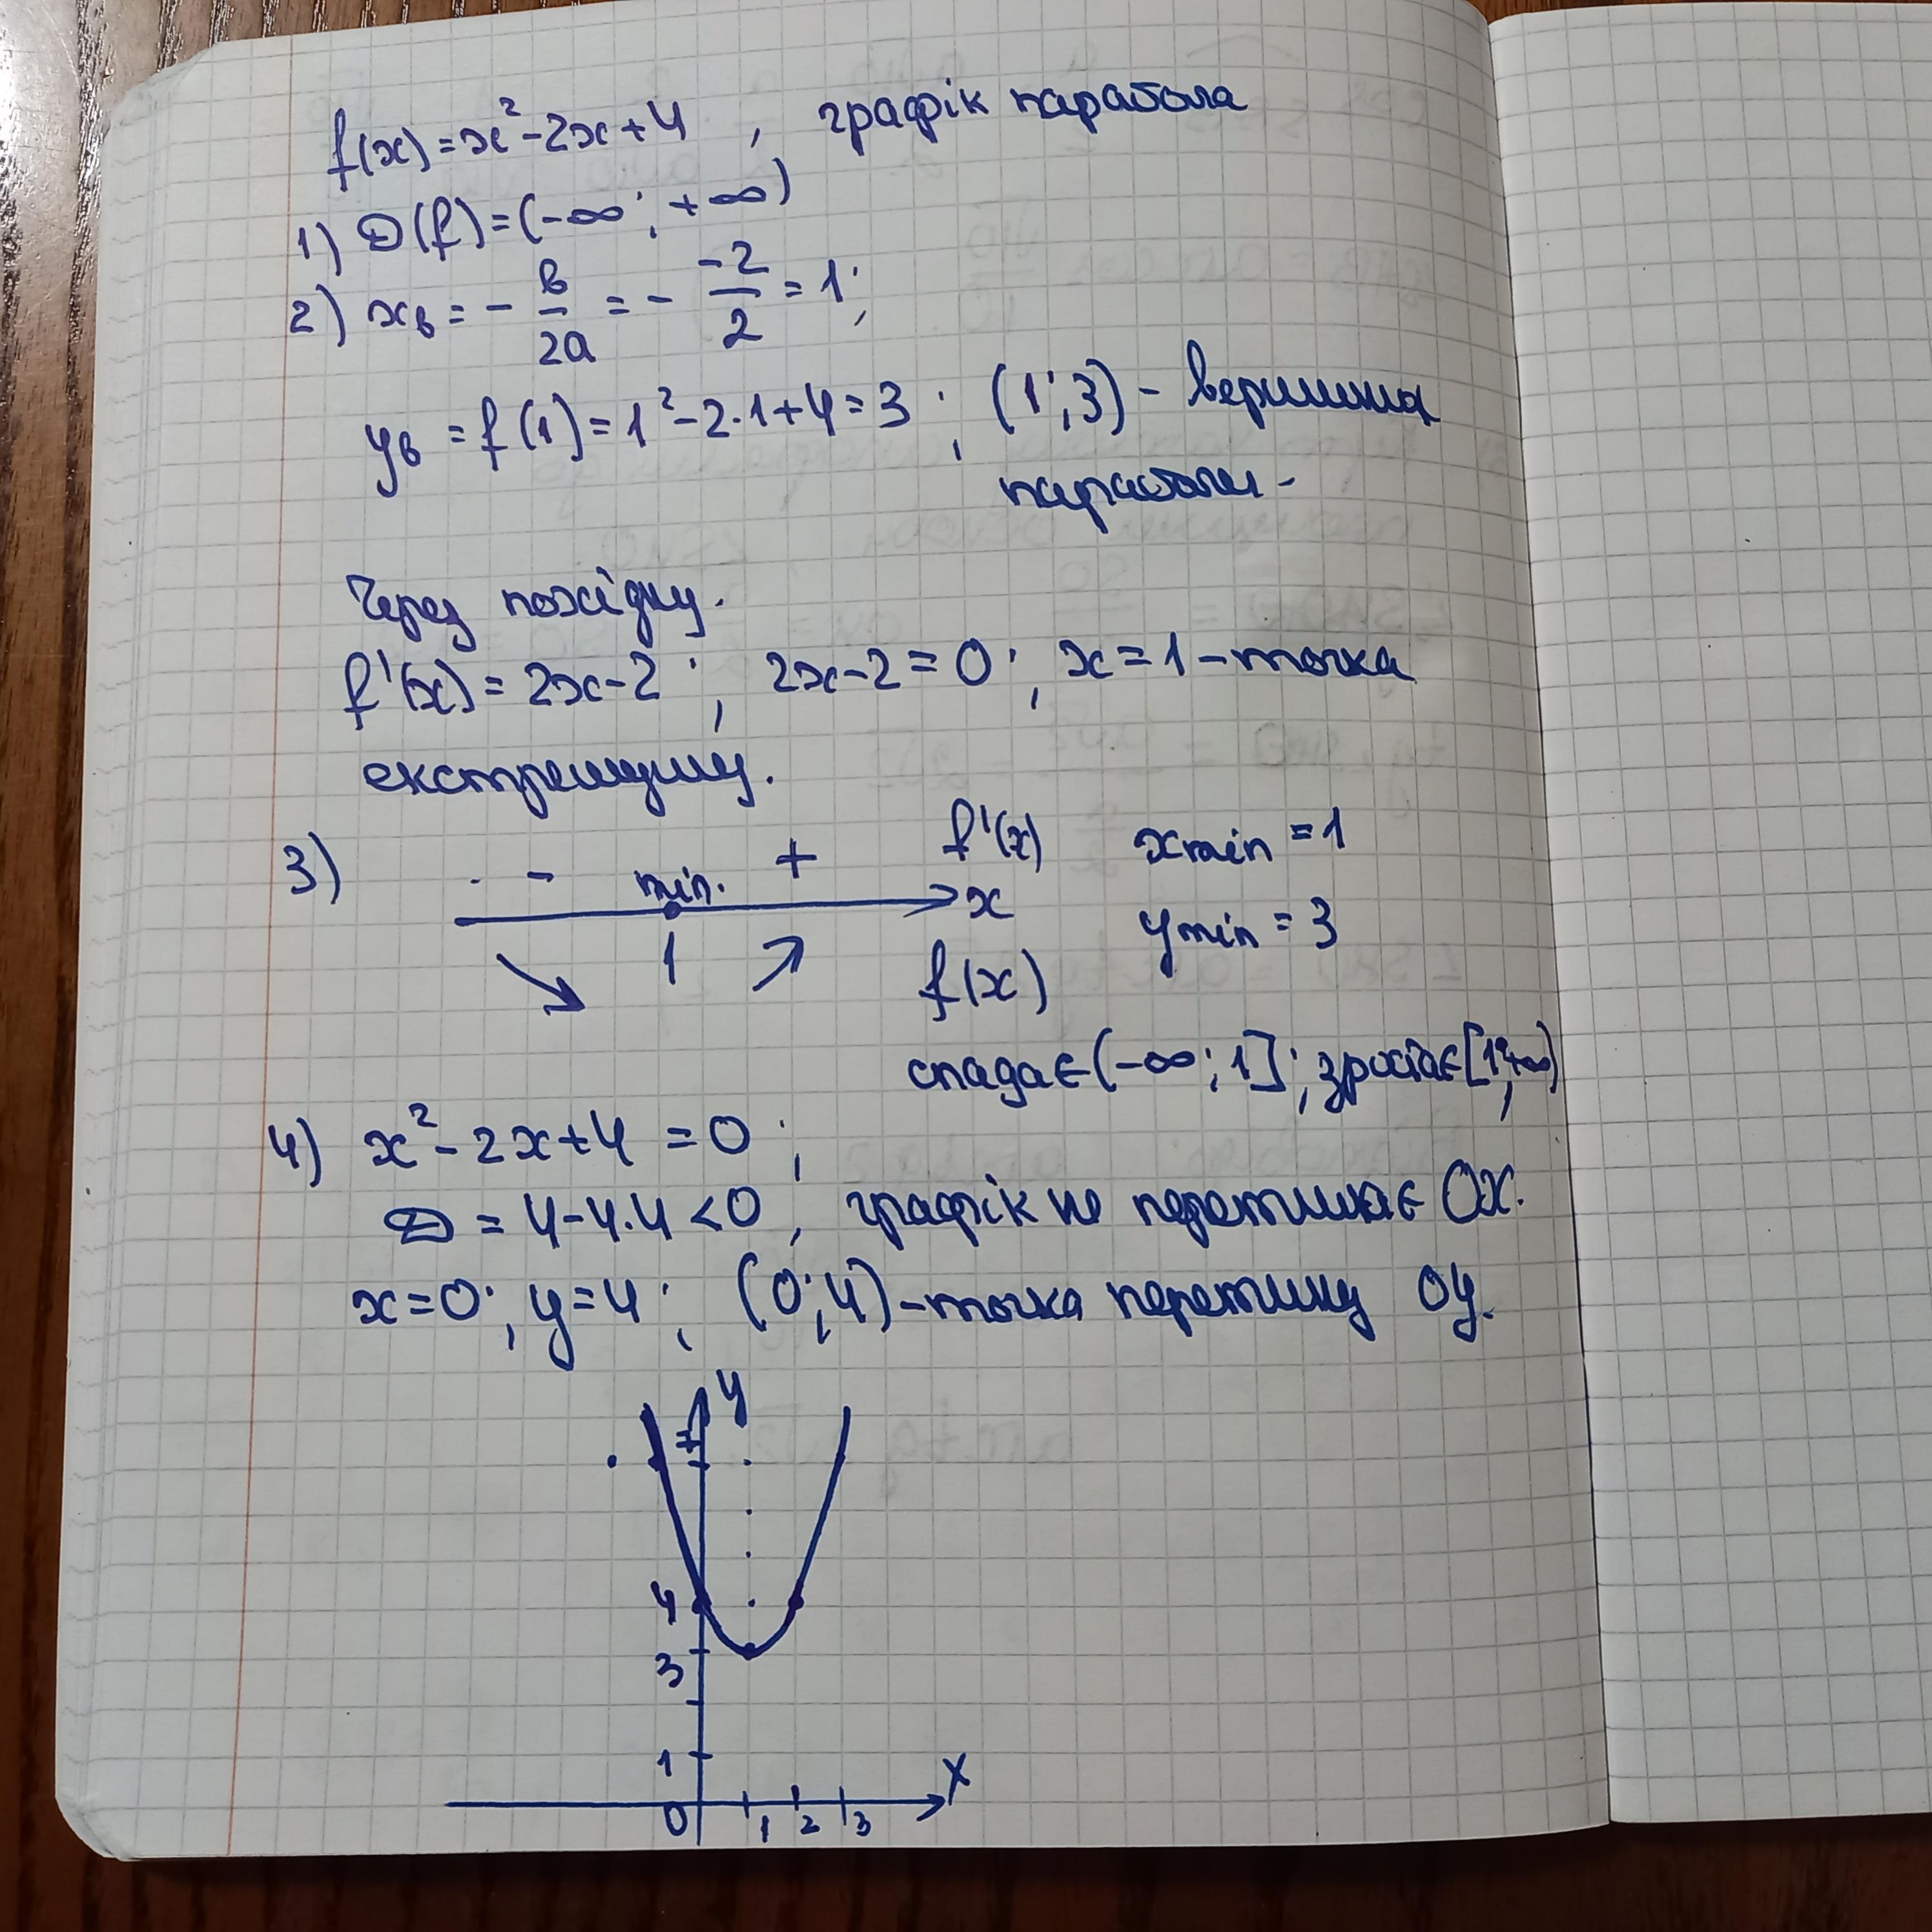 f(x)=x²-2x+4 , графік парабола
1) D(f)=(-∞;+∞)
2) xв = - в/2a = - -2/2 = 1;
yв = f(1)=1²-2·1+4=3 ; (1;3) - вершина
параболи.
Через похідну.
f'(x)=2x-2 ; 2x-2=0 ; x=1 - точка
екстремуму.
3) - min. + f'(x) xmin =1
x
1 f(x) ymin = 3
спадає (-∞;1]; зростає [1;+∞)
4) x²-2x+4 =0 ;
D = 4-4·4<0 , графік не перетинає Ox.
x=0; y=4 ; (0;4) - точка перетину Oy.
y
7
4
3
1
x
0 1 2 3